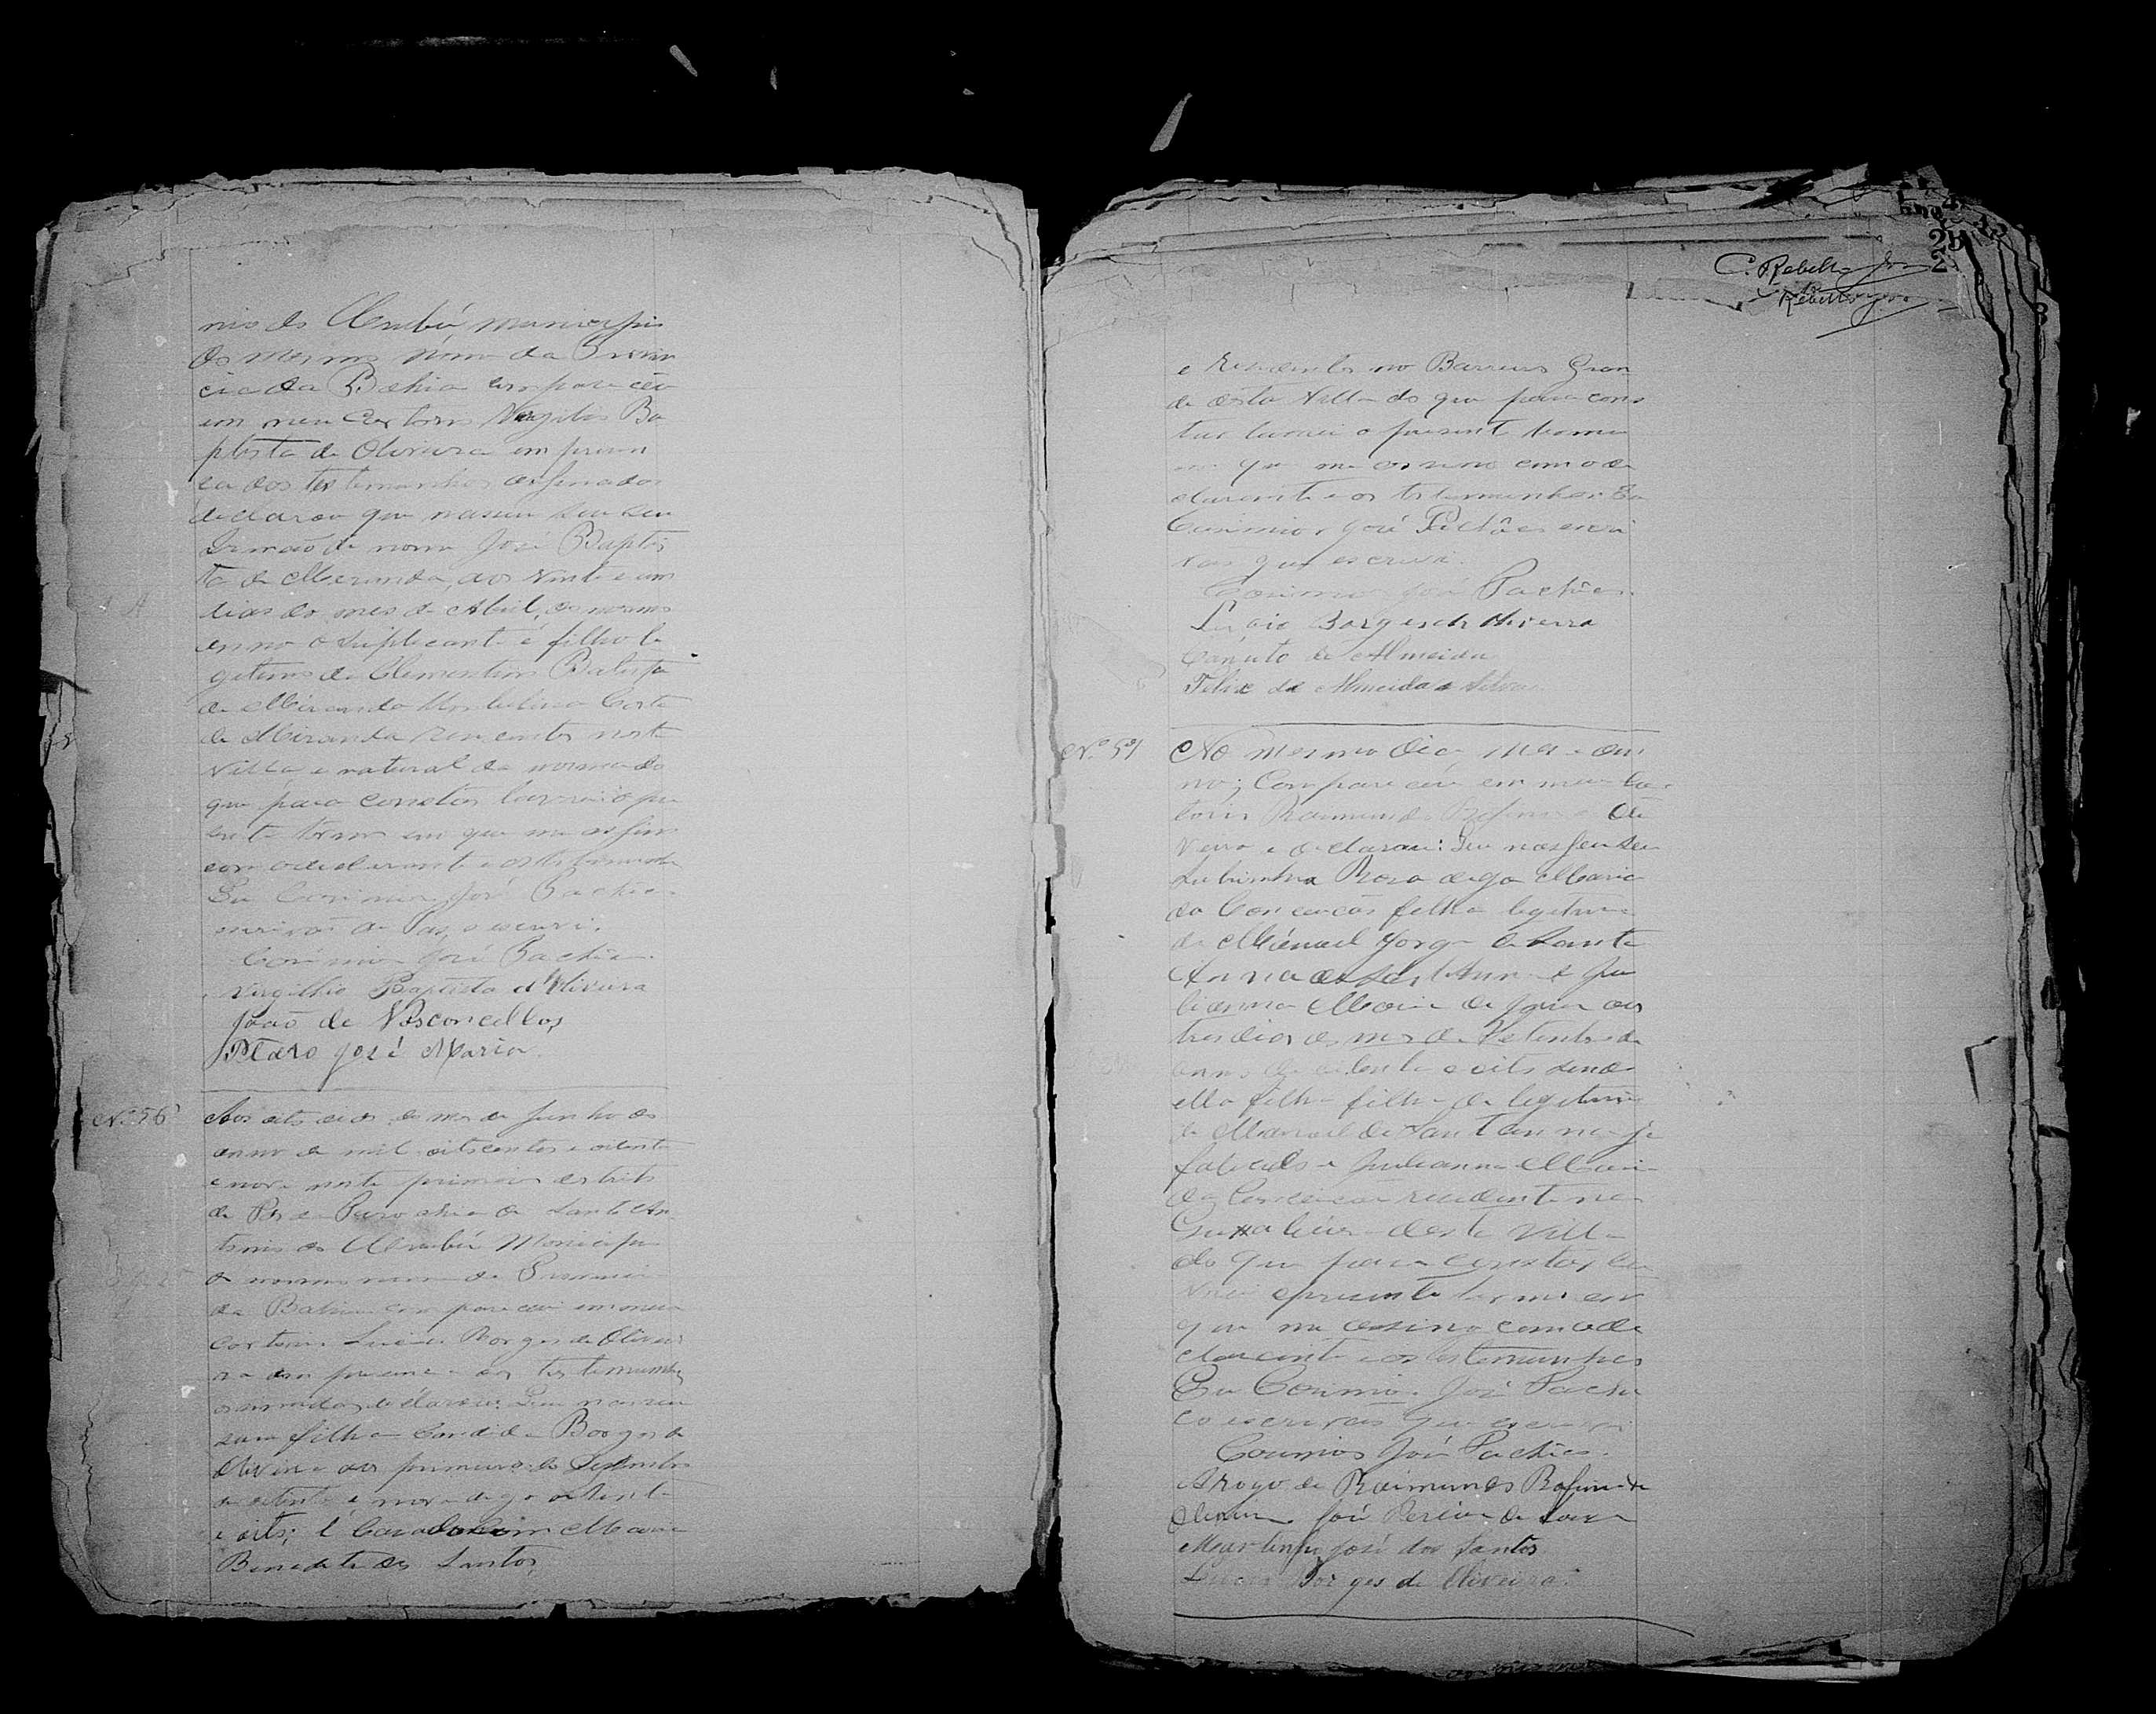 nio do Urubú, municipio
do mesmo nome da Provin
cia da Bahia compareceu
em meu Cartorio Virgilio Ba
ptista de Oliveira em presen
ça dos testemunhas assinados
declarou que nasceu seu
Irmão de nome José Baptis
ta de Miranda, aos vinte e um
dias do mes de Abril, do mesmo
anno o suplicante é filho le
gitimo de Clementino Batista
de Miranda Costa
de Miranda residentes nesta
Villa e natural da mesma do
que para constar lavrei o pre
sente termo em que me assino
com o declarante e as testemunhas
Eu Cosimio José Pachêco
escrivão de Pas, o escrevi.
Cosimio José Pachêco.
Virgilhio Baptista d'Oliveira
João de Vasconcellos
Pedro José Maria.
Nº 56 Aos oito dias do mes de Junho do
anno de mil oitocentos e oitenta
e nove neste primeiro destrito
de Pas da Parochia de Santo An
tonio do Urubú Municipio
do mesmo nome da Provincia
da Bahia compareceu em meu
cartorio Lucio Borges de Olivei
ra em presença das testemunhas
assinadas declarou: Que nasceu
sua filha Candida Borges de
Oliveira aos primeiro de Setembro
de oitenta e nove digo oitenta
e oito; é casado com Maria
Benedita dos Santos,
C. Rebello
Rebello
e Residentes no Barreiro Gran
de desta Villa do que para cons
tar lavrei o presente termo
em que me assino com o de
clarante e as testemunhas Eu
Cosimio José Pachêco escri
vão que escrevi.
Cosimio José Pachêco.
Lucio Borges de Oliveira
Canuto de Almeida
Felix de Almeida e Silva
Nº 57 No mesmo dia, mes e an
no; Compareceu em meu Car
torio Raimundo Oli
veira e declarou: Que nasceu seu
Sobrinha Rosa digo Maria
da Conceição filha legitima
de Manuel Jorge de Santa
Anna e Ju
lianna Maria de Jesus aos
tres dias do mes de Setembro do
anno de oitenta e oito sendo
ella filha filha de legitima
de Manoel de Santanna já
falecido e Julianna Maria
da Conceição residente na
desta Villa
do que para constar la
vrei o presente termo em
que me assino com o de
clarante e as testemunhas
Eu Cosimio José Pache
co escrivão que escrevi
Cosimio José Pachêco.
Arogo de Raimundo
Oliveira José Pereira de Souza
Martinho José dos Santos
Lucio Borges de Oliveira.